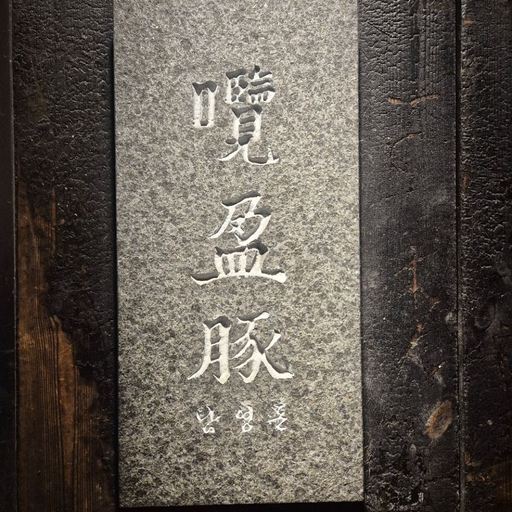 囕盈豚
남영돈